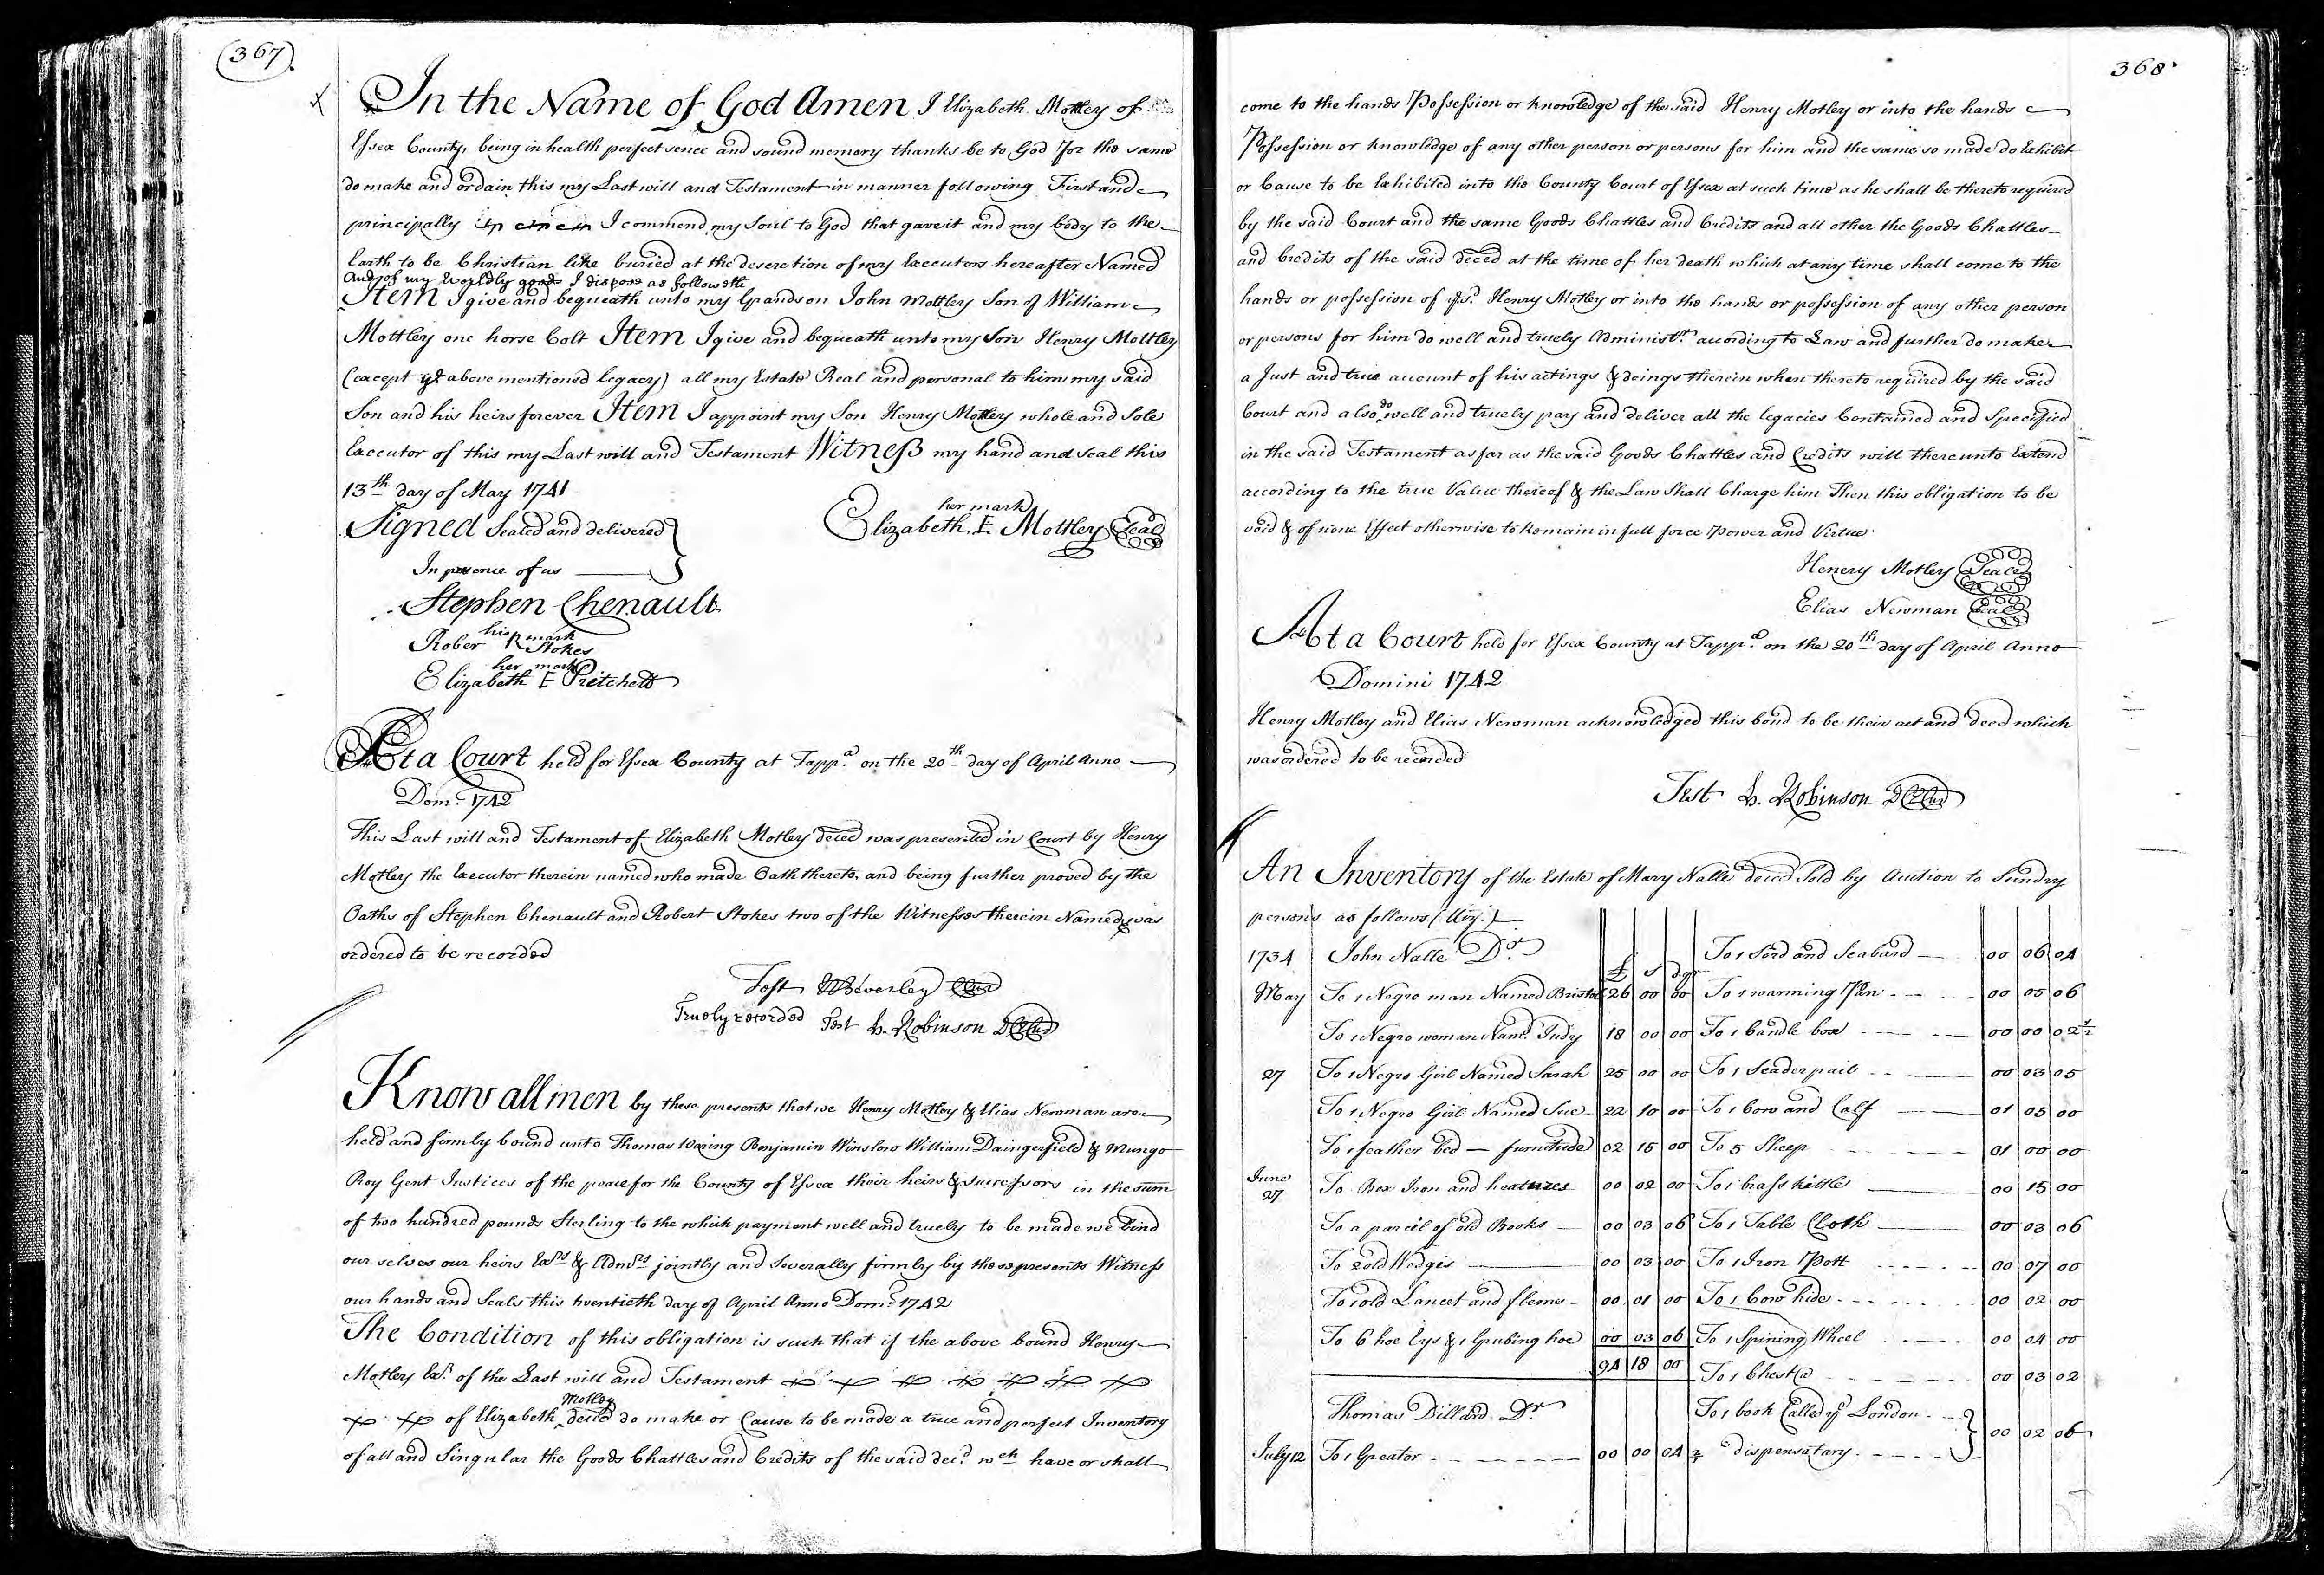 367
In the Name of God Amen I Elizabeth Mottley of
Essex County, being in health perfect sence and sound memory thanks be to God for the same
do make and ordain this my Last will and Testament in manner following First and
principally I commend my Soul to God that gave it and my body to the
Earth to be Christian like buried at the descretion of my Executors hereafter Named
And of my Worldly goods I dispose as followeth
Item I give and bequeath unto my Grandson John Mottley Son of William
Mottley one horse Colt Item I give and bequeath unto my Son Henry Mottley
(except ye above mentioned legacy) all my Estate Real and personal to him my said
Son and his heirs forever Item I appoint my Son Henry Mottley whole and Sole
Executor of this my Last will and Testament Witness my hand and Seal this
13th day of May 1741
her mark
Signed Sealed and delivered
Elizabeth E Mottley Seal
In presence of us
Stephen Chenault
his mark
Rober R Stokes
her mark
Elizabeth E Pritchett
At a Court held for Essex County at Tappa. on the 20th day of April Anno
Dom: 1742
This Last will and Testament of Elizabeth Motley deced was presented in Court by Henry
Motley the Executor therein named who made Oath thereto, and being further proved by the
Oaths of Stephen Chenault and Robert Stokes two of the Witnesses therein Named was
ordered to be recorded
Test WBeverley Clur
Truely recorded Test L. Robinson DCCur
Know all men by these presents that we Henry Motley & Elias Newman are
held and firmly bound unto Thomas Waring Benjamin Winslow William Daingerfield & Mungo
Roy Gent Justices of the peace for the County of Essex their heirs & Successors in the sum
of two hundred pounds Sterling to the which payment well and truely to be made we bind
our selves our heirs Exrs & Admrs jointly and Severally firmly by these presents Witness
our hands and Seals this twentieth day of April Anno Dom: 1742
The Condition of this obligation is such that if the above bound Henry
Motley Exr. of the Last will and Testament
Motley
of Elizabeth deced do make or Cause to be made a true and perfect Inventory
of all and Singular the Goods Chattles and Credits of the said decd. wch have or shall
368
come to the hands Possession or knowledge of the said Henry Motley or into the hands
Possession or knowledge of any other person or persons for him and the same so made do Exhibit
or Cause to be Exhibited into the County Court of Essex at such time as he shall be thereto required
by the said Court and the same Goods Chattles and Credits and all other the Goods Chattles
and Credits of the said deced at the time of her death which at any time shall come to the
hands or possession of ye sd. Henry Motley or into the hands or possession of any other person
or persons for him do well and truely Administr. according to Law and further do make
a Just and true account of his actings & doings therein when thereto required by the said
Court and also do well and truely pay and deliver all the legacies Contained and Specified
in the said Testament as far as the said Goods Chattles and Credits will thereunto Extend
according to the true Value thereof & the Law Shall Charge him Then this obligation to be
void & of none Effect otherwise to Remain in full force Power and Virtue
Henery Motley Seal
Elias Newman Seal
At a Court held for Essex County at Tappa. on the 20th day of April Anno
Domini 1742
Henry Motley and Elias Newman acknowledged this bond to be their act and deed which
was ordered to be recorded
Test L. Robinson DCCur
An Inventory of the Estate of Mary Nalle deced Sold by Auction to Sundry
persons as follows (Viz.)
1734 John Nalle Dr. £ s d
May To 1 Negro man Named Bristol 26 00 00
To 1 Negro woman Namd. Judy 18 00 00
27 To 1 Negro Girl Named Sarah 25 00 00
To 1 Negro Girl Named Sue 22 10 00
To 1 feather bed — furnitude 02 15 00
June 27 To Box Iron and heatures 00 02 00
To a parcil of old Books 00 03 06
To 2 old Wedgis 00 03 00
To 1 old Lancet and flems 00 01 00
To 6 hoe Eys & 1 Grubing hoe 00 03 06
94 18 00
Thomas Dillard Dr
July 12 To 1 Greator 00 00 04 1/2
To 1 Sord and Scabard 00 06 04
To 1 warming Pan 00 05 06
To 1 Candle box 00 00 02 1/2
To 1 Seader pail 00 03 05
To 1 Cow and Calf 01 05 00
To 5 Sheep 01 00 00
To 1 brass kittle 00 15 00
To 1 Table Cloth 00 03 06
To 1 Iron Pott 00 07 00
To 1 Cow hide 00 02 00
To 1 Spining Wheel 00 04 00
To 1 Chest @ 00 03 02
To 1 book Called ye London
dispensatary 00 02 06